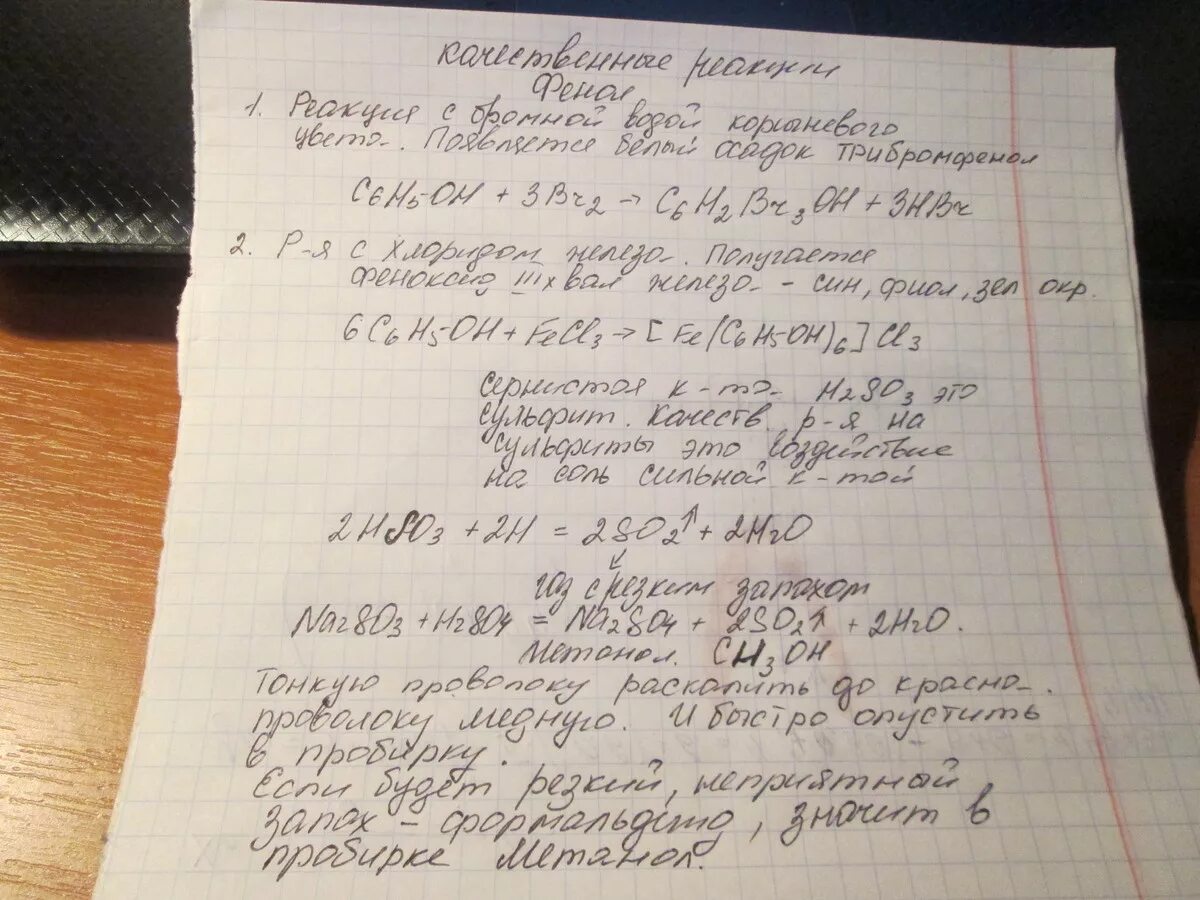 качественные реакции
Фенол
1. Реакция с бромной водой корычневого
цвета. Появляется белый осадок трибромфенол
C6H5OH + 3Br2 → C6H2Br3OH + 3HBr
2. Р-я с хлоридом железа. Получается
феноксид IIIх вал железа - син, фиол, зел окр.
6C6H5OH + FeCl3 → [Fe(C6H5OH)6]Cl3
сернистая к-та H2SO3 это
сульфит. Качеств. р-я на
сульфиты это воздействие
на соль сильной к-той
2HSO3 + 2H = 2SO2↑ + 2H2O
газ с резким запахом
Na2SO3 + H2SO4 = Na2SO4 + 2SO2↑ + 2H2O.
Метанол. CH3OH
Тонкую проволоку раскалить до красна.
проволоку медную. И быстро опустить
в пробирку.
Если будет резкий, неприятный
запах - формальдегид, значит в
пробирке метанол.